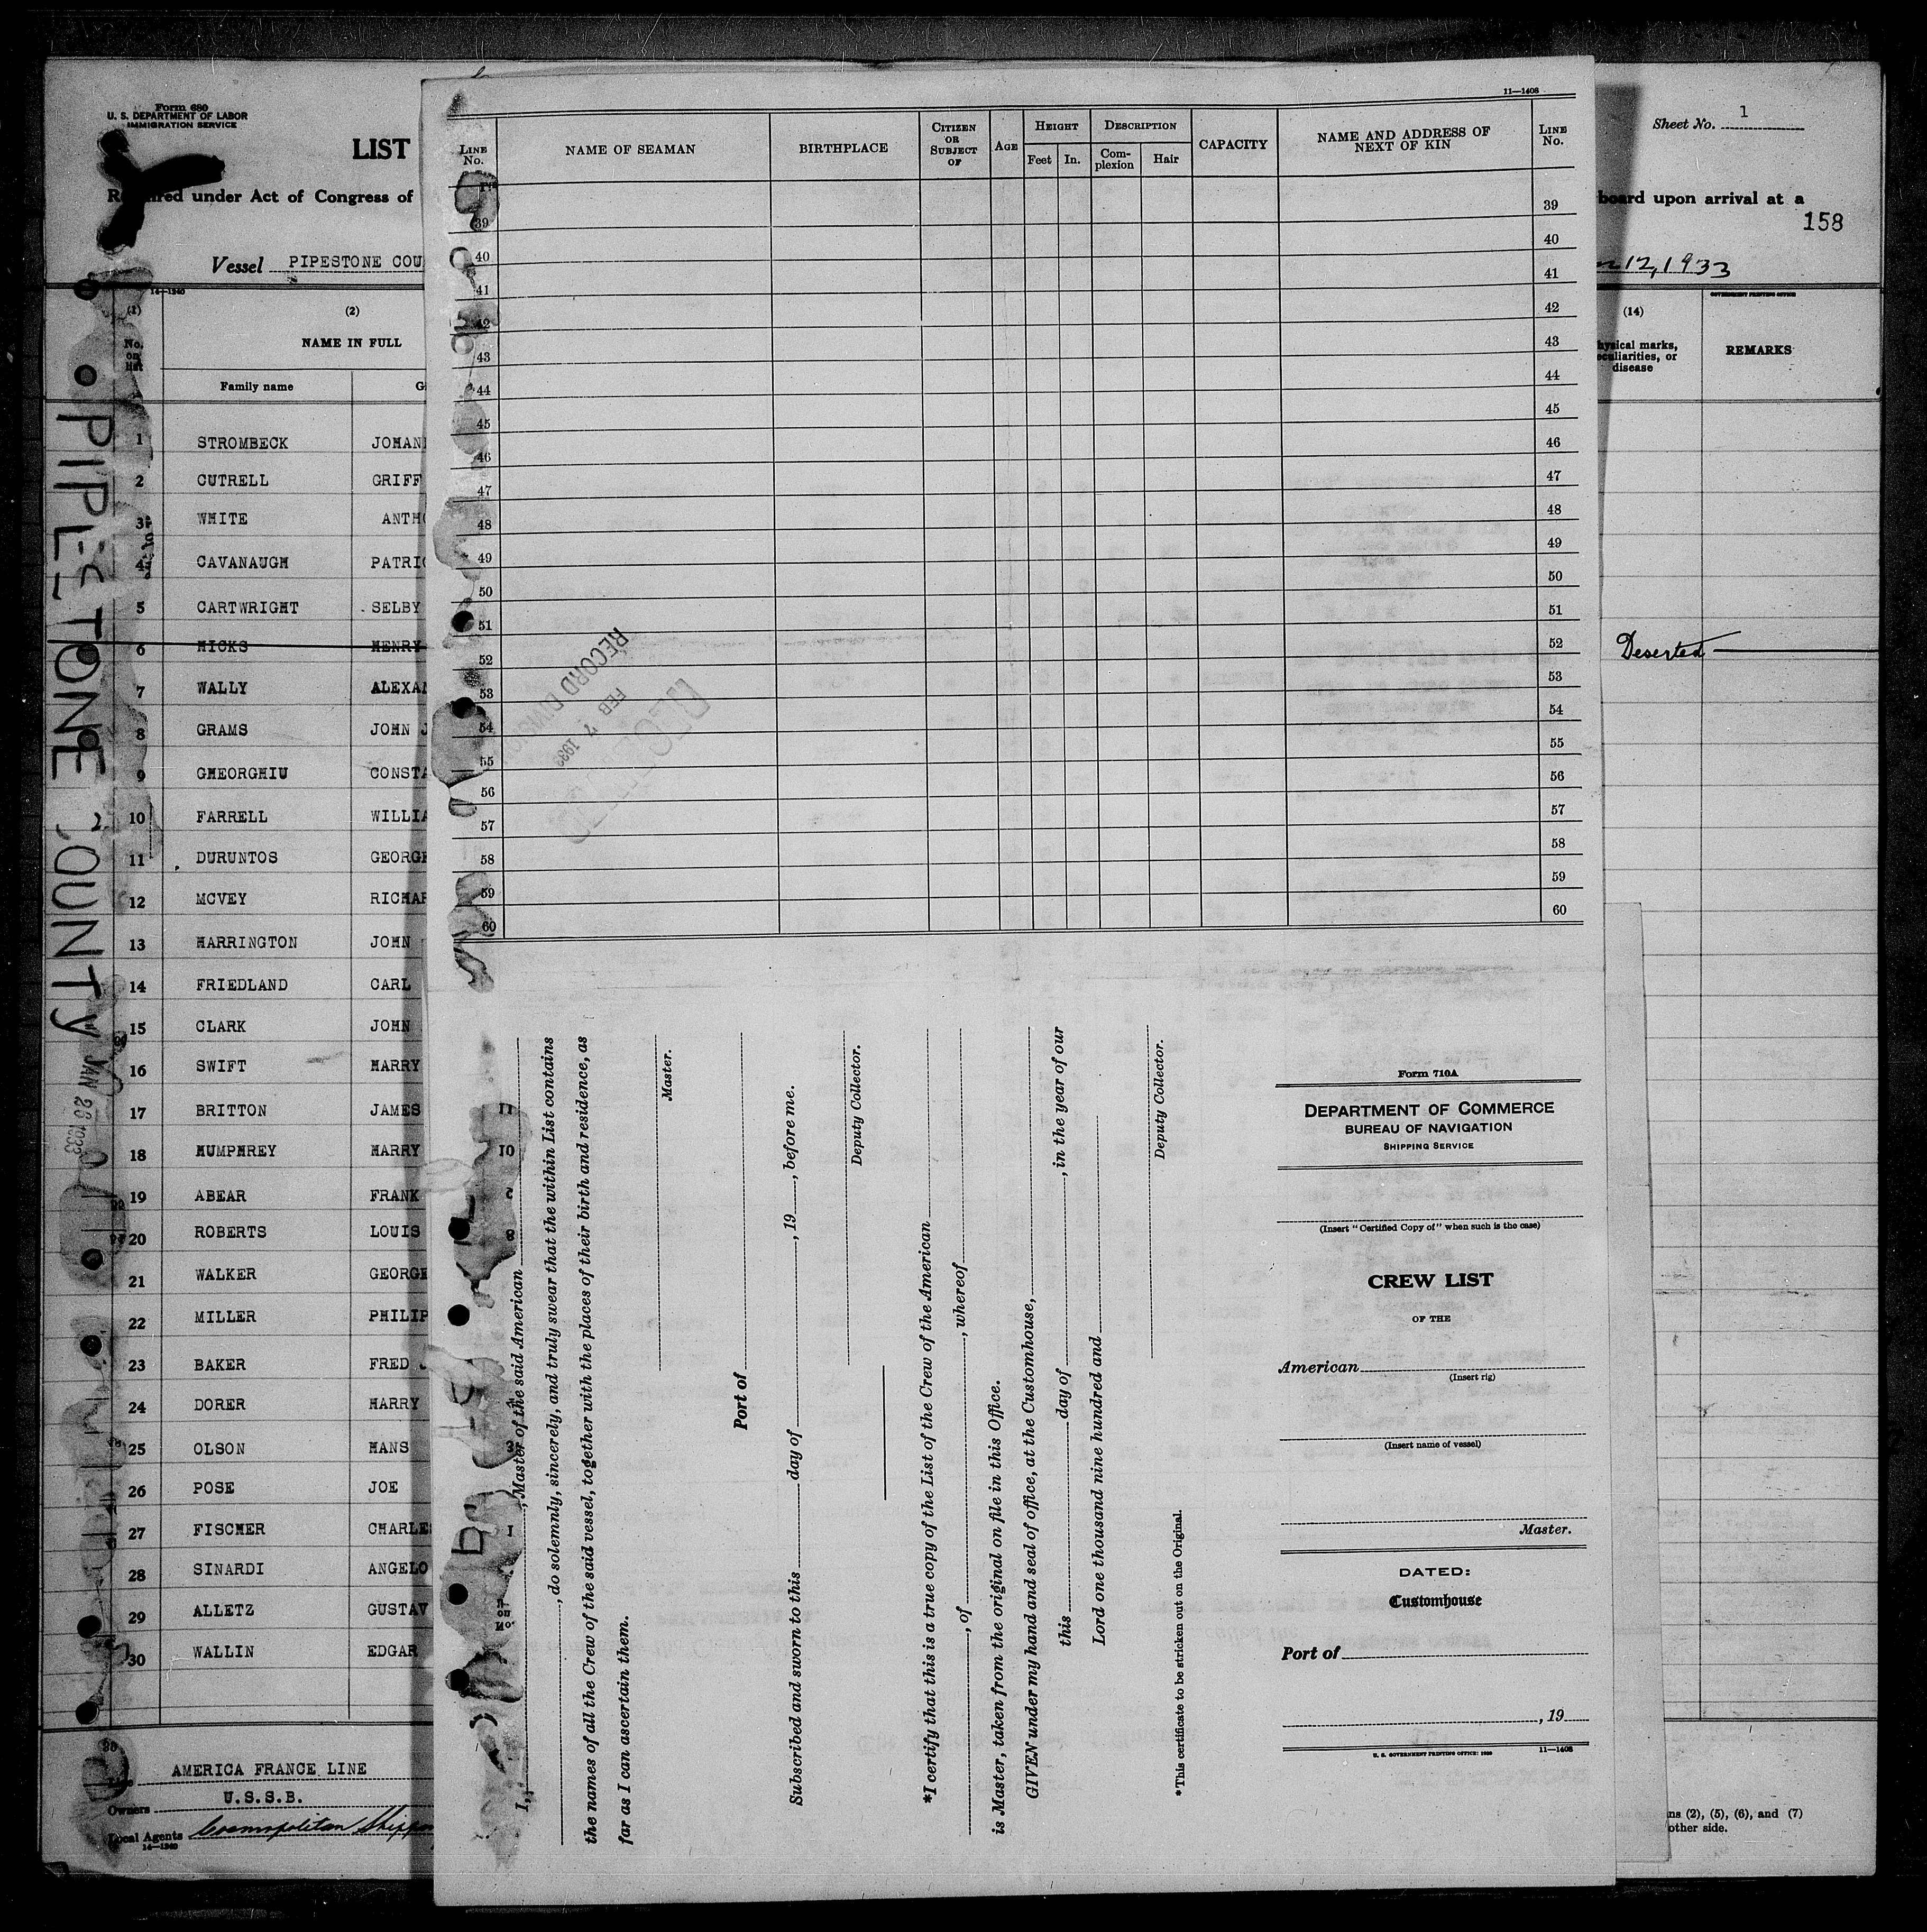 Form 680
U. S. DEPARTMENT OF LABOR
IMMIGRATION SERVICE
LIST
Required under Act of Congress of
Vessel PIPESTONE COU
14—1240
(1)
(2)
No. on list
NAME IN FULL
Family name
G
1 STROMBECK JOHAN
2 CUTRELL GRIFF
3 WHITE ANTHO
4 CAVANAUGH PATRIC
5 CARTWRIGHT SELBY
6 HICKS HENRY
7 WALLY ALEXAN
8 GRAMS JOHN J
9 GHEORGHIU CONSTA
10 FARRELL WILLIA
11 DURUNTOS GEORGE
12 MCVEY RICHAR
13 HARRINGTON JOHN
14 FRIEDLAND CARL
15 CLARK JOHN
16 SWIFT HARRY
17 BRITTON JAMES
18 HUMPHREY HARRY
19 ABEAR FRANK
20 ROBERTS LOUIS
21 WALKER GEORGE
22 MILLER PHILIP
23 BAKER FRED J
24 DORER HARRY
25 OLSON HANS
26 POSE JOE
27 FISCHER CHARLES
28 SINARDI ANGELO
29 ALLETZ GUSTAV
30 WALLIN EDGAR
AMERICA FRANCE LINE
Owners U.S.S.B.
Local Agents Cosmopolitan Shippin
14—1240
PIPESTONE COUNTY
JAN 26 1933
11—1408
LINE No.
NAME OF SEAMAN
BIRTHPLACE
CITIZEN OR SUBJECT OF
AGE
HEIGHT
Feet
In.
DESCRIPTION
Complexion
Hair
CAPACITY
NAME AND ADDRESS OF NEXT OF KIN
LINE No.
39 39
40 40
41 41
42 42
43 43
44 44
45 45
46 46
47 47
48 48
49 49
50 50
51 51
52 52
53 53
54 54
55 55
56 56
57 57
58 58
59 59
60 60
RECORD DIVISION
FEB 7 1933
I,
, Master of the said American
, do solemnly, sincerely, and truly swear that the within List contains
the names of all the Crew of the said vessel, together with the places of their birth and residence, as
far as I can ascertain them.
Master.
Port of
Subscribed and sworn to this day of , 19 , before me.
Deputy Collector.
*I certify that this is a true copy of the List of the Crew of the American
, of , whereof
is Master, taken from the original on file in this Office.
GIVEN under my hand and seal of office, at the Customhouse,
this day of , in the year of our
Lord one thousand nine hundred and
Deputy Collector.
*This certificate to be stricken out on the Original.
Form 710A
DEPARTMENT OF COMMERCE
BUREAU OF NAVIGATION
SHIPPING SERVICE
(Insert "Certified Copy of" when such is the case)
CREW LIST
OF THE
American
(Insert rig)
(Insert name of vessel)
Master.
DATED:
Customhouse
Port of
, 19
U. S. GOVERNMENT PRINTING OFFICE: 1930
11—1408
Sheet No. 1
board upon arrival at a
158
12, 1933
GOVERNMENT PRINTING OFFICE
(14)
hysical marks,
eculiarities, or
disease
REMARKS
Deserted
ns (2), (5), (6), and (7)
other side.